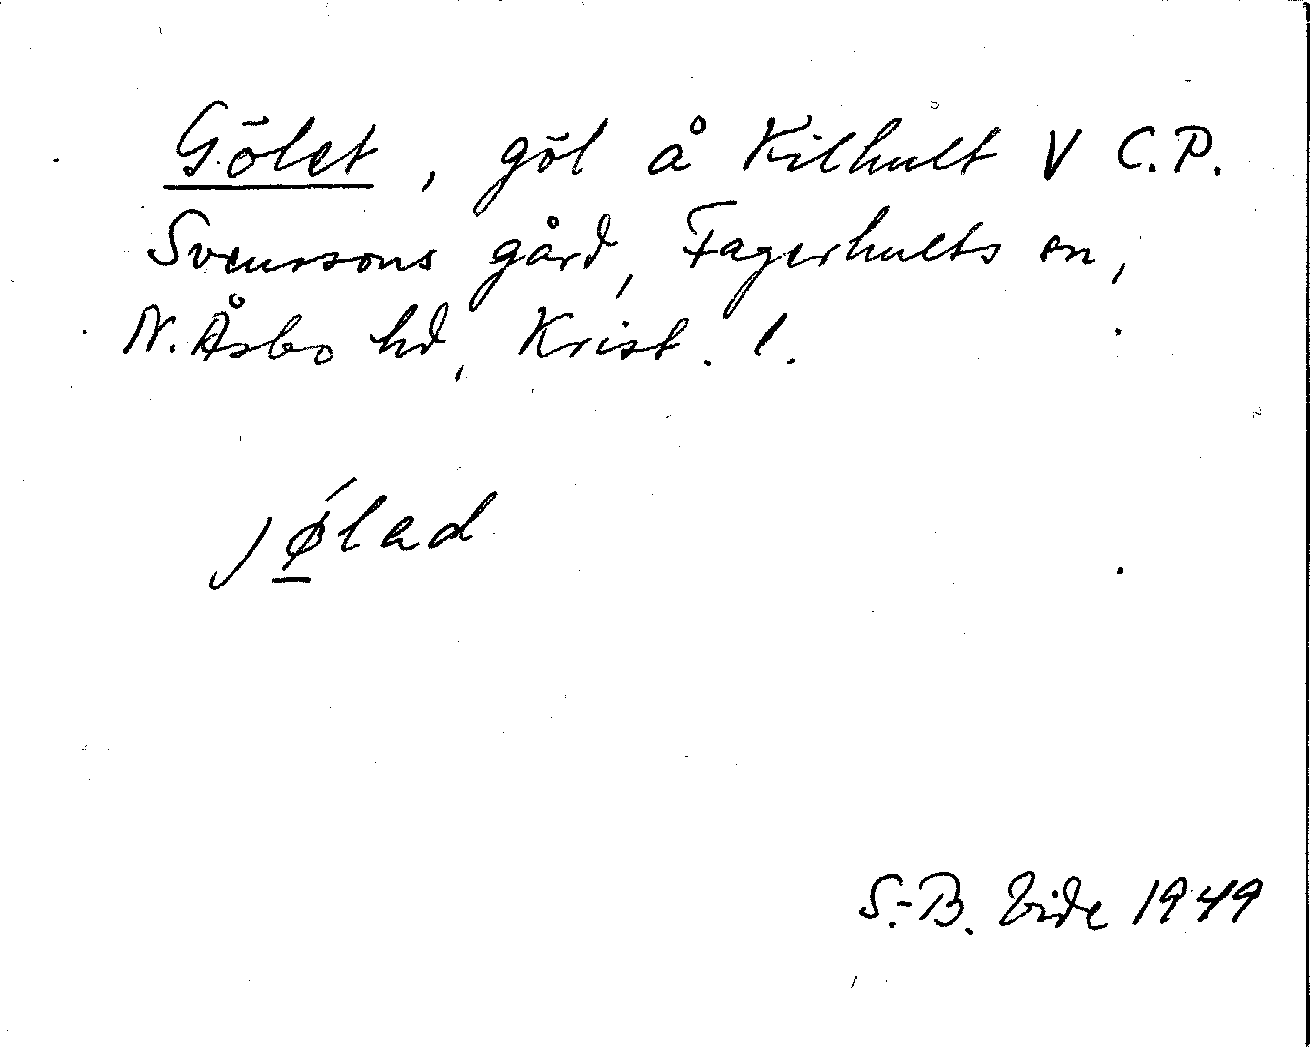 Gölet, göl å Kilhult V C.P.
Svenssons gård, Fagerhults sn,
N. Åsbo hd, Krist. l.
jǿlad
S.-B. Vide 1949